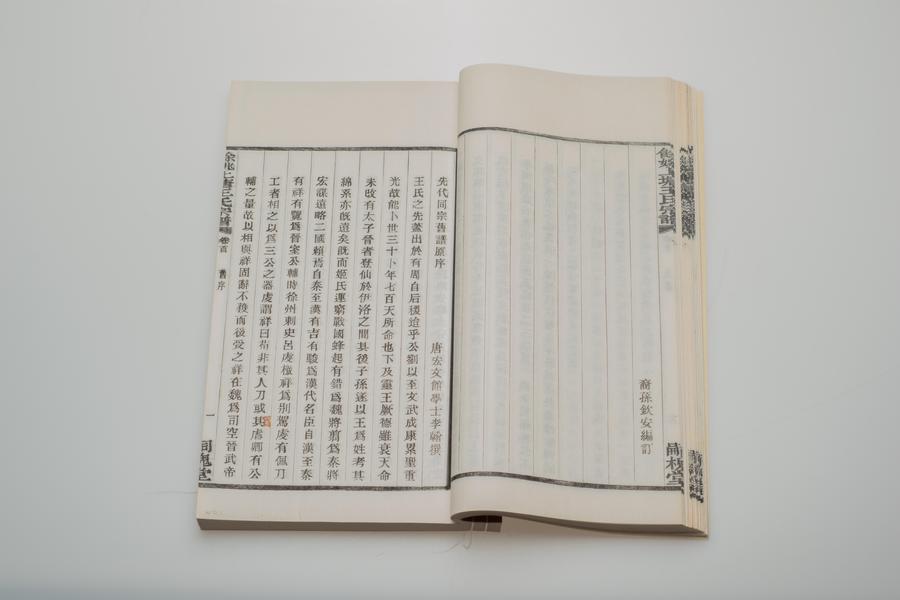 裔孫欽安編訂
先代同宗舊譜原序
唐宏文館學士李翰撰
王氏之先蓋出於有周自后稷迨乎公劉以至文武成康累聖重
光故能卜世三十卜年七百天所命也下及靈王厥德雖衰天命
未改有太子晉者登仙於伊洛之間其後子孫遂以王爲姓考其
綿系亦旣遠矣旣而姬氏運窮戰國蜂起有錯爲魏將翦爲秦將
宏謀遠略二國賴焉自秦至漢有吉有駿爲漢代名臣自漢至泰
有祥有覽爲晉室公輔時徐州刺史呂虔檄祥爲別駕虔有佩刀
工者相之以爲三公之器虔謂祥曰苟非其人刀或其虐卿有公
輔之量故以相與祥固辭不獲而後受之祥在魏爲司空晉武帝
王氏宗譜 卷首 舊序 一 同槐堂